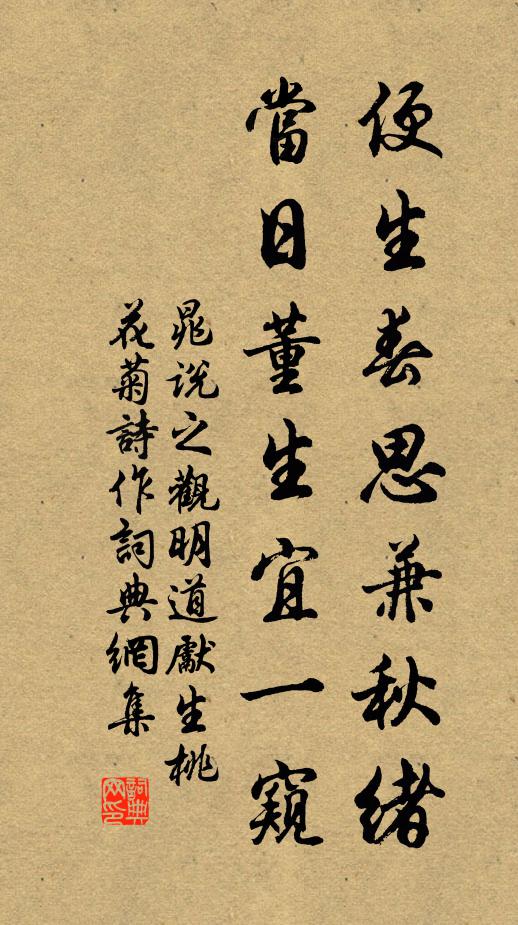 便生春思兼秋緒
當日董生宜一窺
晁說之觀明道獻生桃
花菊詩作詞典網集
詞典网印